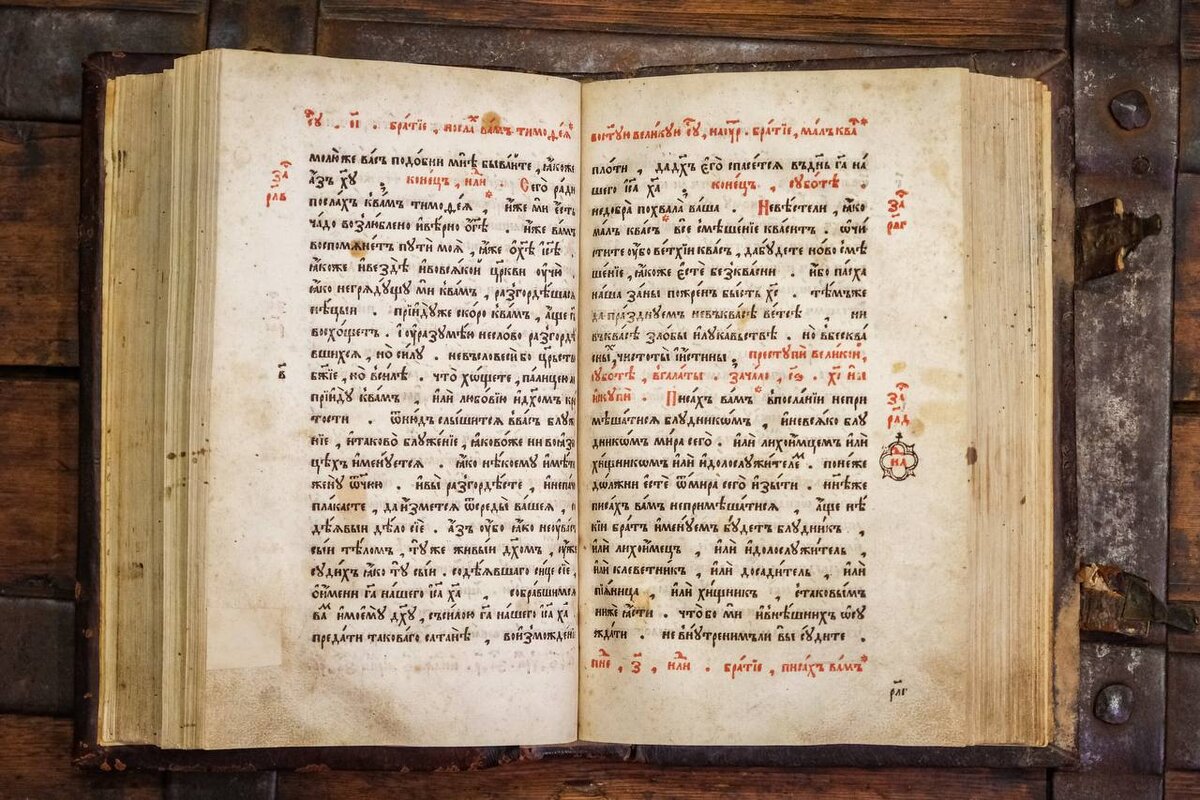 молюжевасъ подобни мнѣ бывайте, ꙗкоже
а҆зъ хⷭ҇у, конецъ, нлⷧ҇и. Сего ради
послахъ квамъ тимоѳеѧ, и҆же ми єсть
чадо возлюблено и҆вѣрно ѡ҆гⷭ҇ѣ. и҆же вамъ
воспомѧнетъ пути моѧ, ꙗже ѡ҆хⷭ҇ѣ і҆сⷭ҇ѣ.
ꙗкоже и҆вездѣ и҆вовсѧкой црⷪ҇кви оучю̀.
ꙗко негрѧдущу ми квамъ, разгордѣшасѧ
нѣцыи. прїидуже скоро квамъ, а҆ще
восхощетъ. и҆ оуразумѣю неслово разгордѣ
вшихсѧ, но силу. невъсловеси бо црⷭ҇тв
бж҃їе, но всилѣ. что хощете, палицею
прїиду квамъ, и҆ли любовїю и҆дх҃омъ к
тости. ѿнюдъ слышитсѧ ввасъ блуж
нїе, и҆таково блуженїе, ꙗковоже ни воꙗзы
цѣхъ именуетсѧ. ꙗко нѣкоему имѣти
жену ѿчю. и҆вы разгордѣсте, и҆непаче
плакасте, да измется ѿсреды вашеѧ,
дѣѧвыи дѣло сїе. а҆зъ оубо ꙗко неоу
сыи тѣломъ, туже живыи дх҃омъ, оуже
судихъ ꙗко ту сыи. содѣѧвшаго сице сїе,
ѡ҆имени гⷭ҇а нашего і҆сⷭ҇а хⷭ҇а, собравшимсѧ
вамъ и҆моему дх҃у, съсилою гⷭ҇а нашего і҆сⷭ҇а хⷭ҇а
предати таковаго сатанѣ, воизмождені
братїе, послаⷯ вамъ тимоѳеѧ
за
рлв
в
востую великую
братїе, малъ ква
плоти, да дх҃ъ єго спасетсѧ въднь гⷭ҇а на
шего і҆сⷭ҇а хⷭ҇а, конецъ, суботѣ.
недобра похвала ваша. Невѣстели, ꙗко
малъ квасъ все смѣшенїе квасит. ѡ҆чи
стите оубо ветхїи квасъ, да будете ново смѣ
шенїе, ꙗкоже єсте безквасни. и҆бо пасха
наша за ны пожренъ бысть хⷭ҇. тѣмъже
да празднуемъ невъквасѣ ветсѣ, ни
въквасѣ злобы и҆лукавьствѣ. но вбесква
сїиⷯ чистоты и҆истины, преступи великой,
суботѣ, вгалаты. зачало,
и҆скупи. Писахъ вамъ впосланїи непри
мѣшатисѧ блудникомъ, и҆невсѧко блу
дникомъ мира сего. и҆ли лихоимцемъ и҆ли
хищникомъ и҆ли идолослужителеⷨ. понеже
должни єсте ѿмира сего изыти. нн҃ѣже
писахъ вамъ непримѣшатисѧ, а҆ще нѣ
кїи братъ и҆менуемъ будетъ блудникъ,
и҆ли лихоимецъ, и҆ли идолослужитель,
и҆ли клеветникъ, и҆ли досадитель, и҆ли
пїѧница, и҆ли хищникъ, стаковымъ
ниже ꙗсти. чтобо ми и҆внѣшнихъ ѡ҆су
ждати. невнутренихъли вы судите.
братїе, писахъ вамъ
за
рлг
за
рлд
рлг